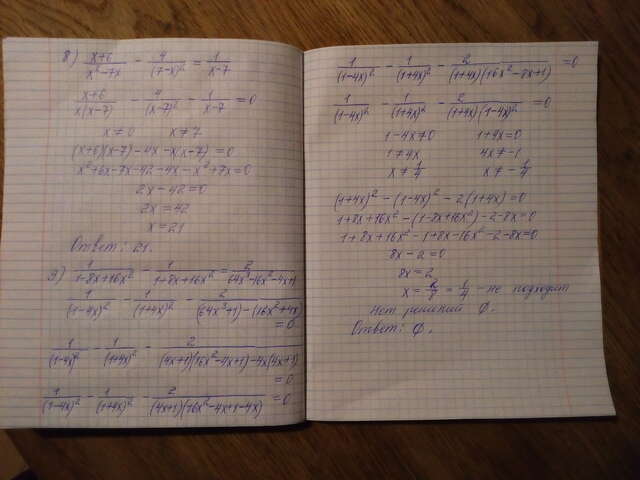 8) (x+6)/(x²-7x) - 4/(7-x)² = 1/(x-7)
(x+6)/(x(x-7)) - 4/(x-7)² - 1/(x-7) = 0
x≠0 x≠7
(x+6)(x-7)-4x-x(x-7)=0
x²+6x-7x-42-4x-x²+7x=0
2x-42=0
2x=42
x=21
Ответ: 21.
9) 1/(1-8x+16x²) - 1/(1+8x+16x²) = 2/(64x³-16x²-4x+1)
1/(1-4x)² - 1/(1+4x)² - 2/((64x³+1)-(16x²+4x)) = 0
1/(1-4x)² - 1/(1+4x)² - 2/((4x+1)(16x²-4x+1)-4x(4x+1)) = 0
1/(1-4x)² - 1/(1+4x)² - 2/((4x+1)(16x²-4x+1-4x)) = 0
1/(1-4x)² - 1/(1+4x)² - 2/((1+4x)(16x²-8x+1)) = 0
1/(1-4x)² - 1/(1+4x)² - 2/((1+4x)(1-4x)²) = 0
1-4x≠0 1+4x=0
1≠4x 4x≠-1
x≠1/4 x≠-1/4
(1+4x)²-(1-4x)²-2(1+4x)=0
1+8x+16x²-(1-8x+16x²)-2-8x=0
1+8x+16x²-1+8x-16x²-2-8x=0
8x-2=0
8x=2
x=2/8=1/4 - не подходит
Нет решений ∅.
Ответ: ∅.